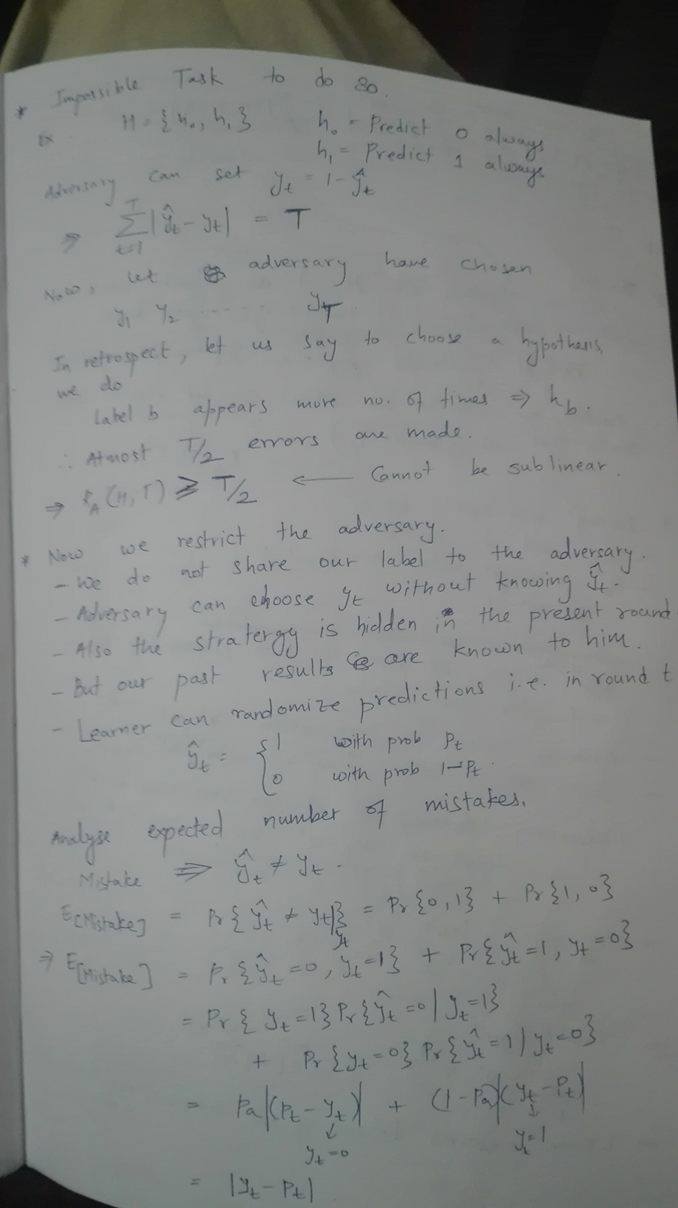 * Impossible Task to do so.
Ex H = {h₀, h₁} h₀ = Predict 0 always
h₁ = Predict 1 always
Adversary can set y_t = 1 - ŷ_t
⇒ Σ_{t=1}^{T} |ŷ_t - y_t| = T
Now, let adversary have chosen
y₁ y₂ ...... y_T
In retrospect, let us say to choose a hypothesis,
we do
Label b appears more no. of times ⇒ h_b.
∴ Atmost T/2 errors are made.
⇒ R_A(H,T) ≥ T/2 ← Cannot be sublinear.
* Now we restrict the adversary.
- We do not share our label to the adversary.
- Adversary can choose y_t without knowing ŷ_t.
- Also the stratergy is hidden in the present round
- But our past results are known to him.
- Learner can randomize predictions i.e. in round t
ŷ_t = { 1 with prob P_t
0 with prob 1-P_t.
Analyse expected number of mistakes.
Mistake ⇒ ŷ_t ≠ y_t.
E[Mistake] = Pr{ŷ_t ≠ y_t} = Pr{0,1} + Pr{1,0}
⇒ E[Mistake] = Pr{ŷ_t=0, y_t=1} + Pr{ŷ_t=1, y_t=0}
= Pr{y_t=1} Pr{ŷ_t=0 | y_t=1}
+ Pr{y_t=0} Pr{ŷ_t=1 | y_t=0}
= Pa|(P_t - y_t)| + (1-Pa)|(y_t - P_t)|
↓ y_t=0 ↓ y_t=1
= |y_t - P_t|